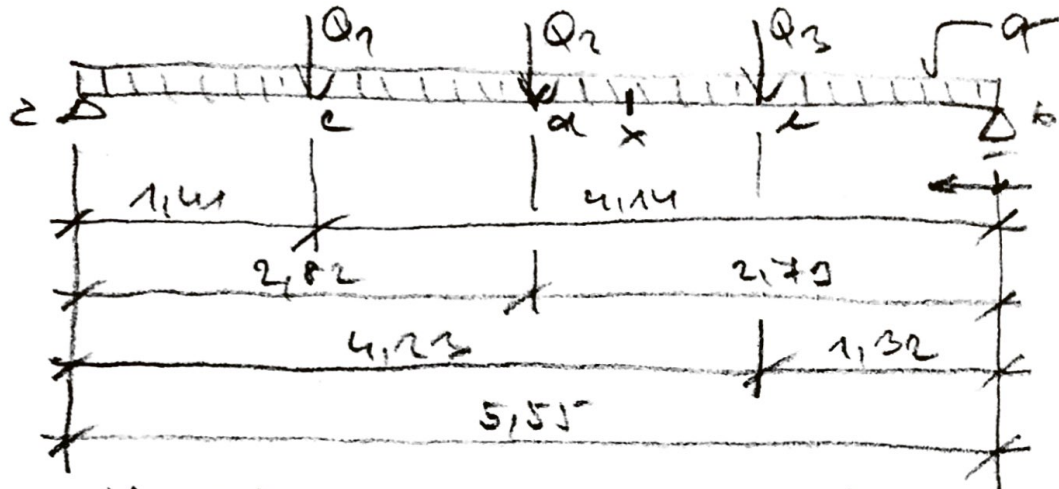 Q1 Q2 Q3 q
c d x b
1,41 4,14
2,82 2,73
4,23 1,32
5,55